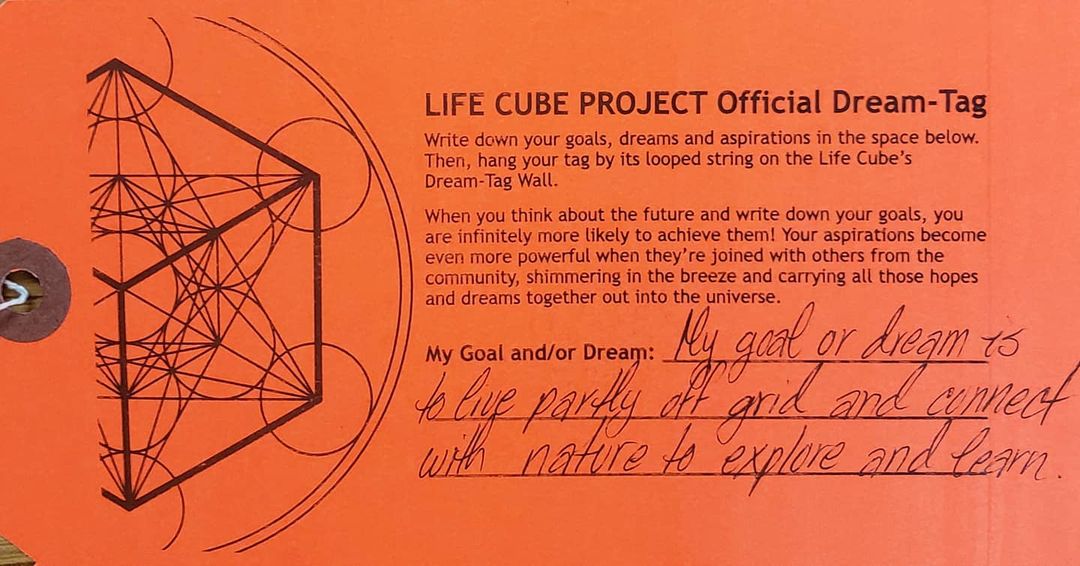 LIFE CUBE PROJECT Official Dream-Tag
Write down your goals, dreams and aspirations in the space below.
Then, hang your tag by its looped string on the Life Cube's
Dream-Tag Wall.
When you think about the future and write down your goals, you
are infinitely more likely to achieve them! Your aspirations become
even more powerful when they're joined with others from the
community, shimmering in the breeze and carrying all those hopes
and dreams together out into the universe.
My Goal and/or Dream: My goal or dream is
to live partly off grid and connect
with nature to explore and learn.